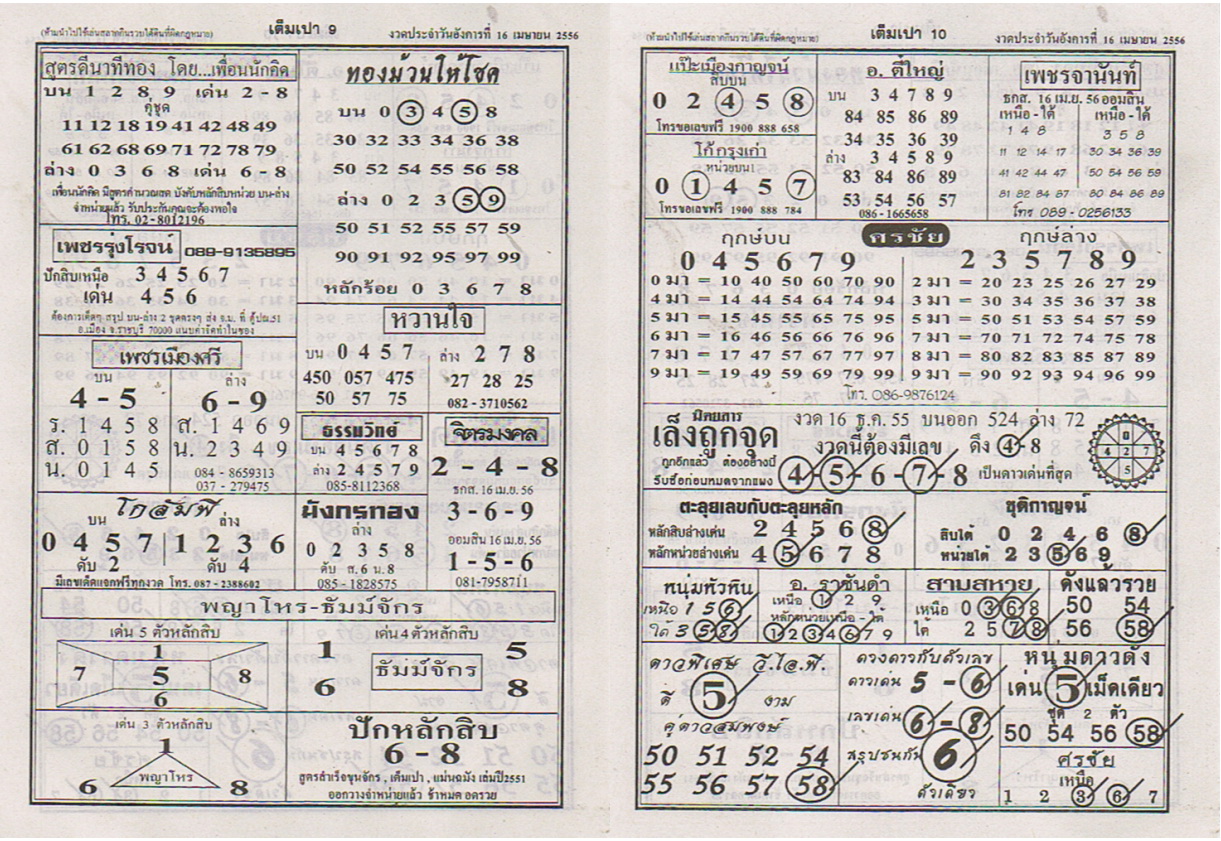 (ห้ามนำไปใช้เล่นสลากกินรวบใต้ดินที่ผิดกฎหมาย) เต็มเปา 9 งวดประจำวันอังคารที่ 16 เมษายน 2556
สูตรดีนาทีทอง โดย...เพื่อนนักคิด
บน 1 2 8 9 เด่น 2 - 8
คู่ชุด
11 12 18 19 41 42 48 49
61 62 68 69 71 72 78 79
ล่าง 0 3 6 8 เด่น 6 - 8
เพื่อนนักคิด มีสูตรคำนวณสด บังคับหลักสิบหน่วย บน-ล่าง
จำหน่ายแล้ว รับประกันคุณจะต้องพอใจ
โทร. 02-8012196
ทองม้วนให้โชค
บน 0 3 4 5 8
30 32 33 34 36 38
50 52 54 55 56 58
ล่าง 0 2 3 5 9
50 51 52 55 57 59
90 91 92 95 97 99
หลักร้อย 0 3 6 7 8
เพชรรุ่งโรจน์ 089-9135895
ปักสิบเหนือ 3 4 5 6 7
เด่น 4 5 6
ต้องการเด็ดๆ สรุป บน-ล่าง 2 ชุดตรงๆ ส่ง ธ.น. ที่ ตู้ปณ.51
อ.เมือง จ.ราชบุรี 70000 แนบค่าจัดทำในซอง
หวานใจ
บน 0 4 5 7 ล่าง 2 7 8
450 057 475 27 28 25
50 57 75 082 - 3710562
เพชรเมืองศรี
บน ล่าง
4 - 5 6 - 9
ร. 1 4 5 8 ส. 1 4 6 9
ส. 0 1 5 8 น. 2 3 4 9
น. 0 1 4 5 084 - 8659313
037 - 279475
ธรรมวิทย์
บน 4 5 6 7 8
ล่าง 2 4 5 7 9
085-8112368
จิตรมงคล
2 - 4 - 8
ธกส. 16 เม.ย. 56
3 - 6 - 9
ออมสิน 16 เม.ย. 56
1 - 5 - 6
081-7958711
โกสัมพี
บน ล่าง
0 4 5 7 1 2 3 6
ดับ 2 ดับ 4
มีเลขเด็ดแจกฟรีทุกงวด โทร. 087 - 2388602
มังกรทอง
ล่าง
0 2 3 5 8
ดับ ส. 6 น. 8
085 - 1828575
พญาโหร-ธัมม์จักร
เด่น 5 ตัวหลักสิบ
1
7 5 8
6
เด่น 4 ตัวหลักสิบ
1 5
ธัมม์จักร
6 8
เด่น 3 ตัวหลักสิบ
1
พญาโหร
6 8
ปักหลักสิบ
6 - 8
สูตรสำเร็จขุนจักร , เต็มเปา , แม่นฉมัง เล่มปี2551
ออกวางจำหน่ายแล้ว ช้าหมด อดรวย
(ห้ามนำไปใช้เล่นสลากกินรวบใต้ดินที่ผิดกฎหมาย) เต็มเปา 10 งวดประจำวันอังคารที่ 16 เมษายน 2556
แป๊ะเมืองกาญจน์
สิบบน
0 2 4 5 8
โทรขอเลขฟรี 1900 888 658
โก้กรุงเก่า
หน่วยบน
0 1 4 5 7
โทรขอเลขฟรี 1900 888 784
อ. ตี๋ใหญ่
บน 3 4 7 8 9
84 85 86 89
34 35 36 39
ล่าง 3 4 5 8 9
83 84 86 89
53 54 56 57
086-1665658
เพชรจานันท์
ธกส. 16 เม.ย. 56 ออมสิน
เหนือ - ใต้ เหนือ - ใต้
1 4 8 3 5 8
11 12 14 17 30 34 36 39
41 42 44 47 50 54 56 59
81 82 84 87 80 84 86 89
โทร 089 - 0256133
ฤกษ์บน ศรชัย ฤกษ์ล่าง
0 4 5 6 7 9 2 3 5 7 8 9
0 มา = 10 40 50 60 70 90 2 มา = 20 23 25 26 27 29
4 มา = 14 44 54 64 74 94 3 มา = 30 34 35 36 37 38
5 มา = 15 45 55 65 75 95 5 มา = 50 51 53 54 57 59
6 มา = 16 46 56 66 76 96 7 มา = 70 71 72 74 75 78
7 มา = 17 47 57 67 77 97 8 มา = 80 82 83 85 87 89
9 มา = 19 49 59 69 79 99 9 มา = 90 92 93 94 96 99
โทร. 086-9876124
๘ นิตยสาร งวด 16 ธ.ค. 55 บนออก 524 ล่าง 72
เล็งถูกจุด งวดนี้ต้องมีเลข ดึง 4 - 8
ถูกอีกแล้ว ต้องอย่างนี้ 4 - 5 - 6 - 7 - 8 เป็นดาวเด่นที่สุด
รีบซื้อก่อนหมดจากแผง
8
4 2 7
5
ตะลุยเลขกับตะลุยหลัก
หลักสิบล่างเด่น 2 4 5 6 8
หลักหน่วยล่างเด่น 4 5 6 7 8
ชุติกาญจน์
สิบใต้ 0 2 4 6 8
หน่วยใต้ 2 3 5 6 9
หนุ่มหัวหิน
เหนือ 1 5 6
ใต้ 3 5 8
อ. ราชันดำ
เหนือ 1 2 9
หลักหน่วยเหนือ - ใต้
1 2 3 4 6 7 9
สามสหาย
เหนือ 0 3 6 8
ใต้ 2 5 7 8
ดังแล้วรวย
50 54
56 58
ดาวพิเศษ วี.ไอ.พี.
ดี 5 งาม
คู่ดาวสมพงษ์
50 51 52 54
55 56 57 58
ดวงดาวกับตัวเลข
ดาวเด่น 5 - 6
เลขเด่น 6 - 8
สรุปชนกัน 6
ตัวเดียว
หนุ่มดาวดัง
เด่น 5 เม็ดเดียว
ชุด 2 ตัว
50 54 56 58
ศรชัย
เหนือ
1 2 3 6 7